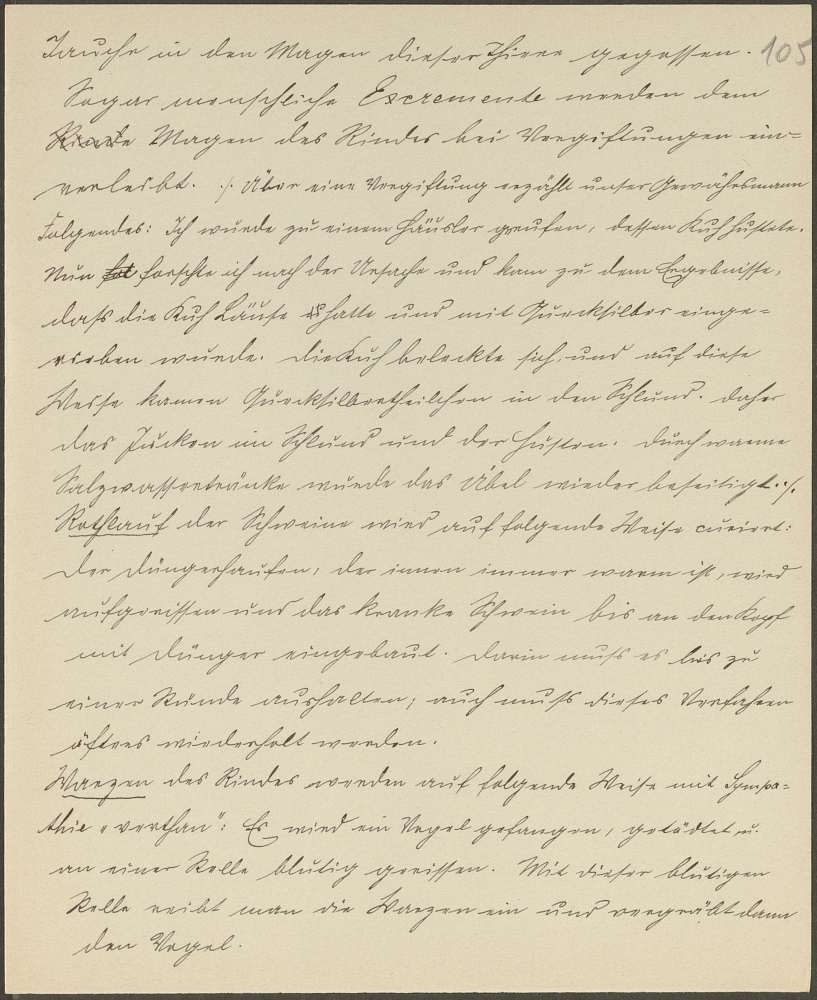 Jauche in den Magen dieser Thiere gegossen. 105
Sogar menschliche Excremente werden dem
Rinde Magen des Rindes bei Vergiftungen ein=
verleibt. ./. Über eine Vergiftung erzählt unser Gewährsmann
Folgendes: Ich wurde zu einem Häusler gerufen, dessen Kuh hustete.
Nun forschte ich nach der Ursache und kam zu dem Ergebnisse,
dass die Kuh Läuse hatte und mit Quecksilber einge=
rieben wurde. Die Kuh beleckte sich, und auf diese
Weise kamen Quecksilbertheilchen in den Schlund. Daher
das Jucken im Schlund und der Husten. Durch warme
Salzwassertränke wurde das Übel wieder beseitigt. ./.
Rothlauf der Schweine wird auf folgende Weise curiert:
Der Düngerhaufen, der innen immer warm ist, wird
aufgerissen und das kranke Schwein bis an den Kopf
mit Dünger eingebaut. Darin muss es bis zu
einer Stunde aushalten; auch muss dieses Verfahren
öfters wiederholt werden.
Warzen des Rindes werden auf folgende Weise mit Sympa=
thie „verthan": Es wird ein Vogel gefangen, getödtet u.
an einer Stelle blutig gerissen. Mit dieser blutigen
Stelle reibt man die Warzen ein und vergräbt dann
den Vogel.